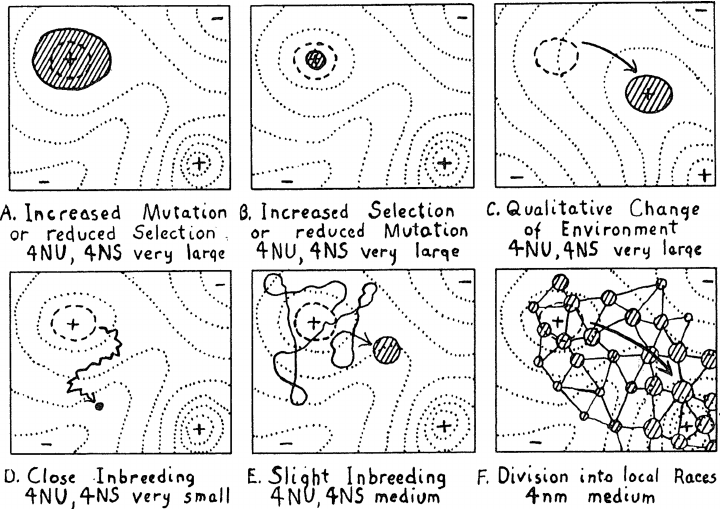 A. Increased Mutation
or reduced Selection
4NU, 4NS very large
B. Increased Selection
or reduced Mutation
4NU, 4NS very large
C. Qualitative Change
of Environment
4NU, 4NS very large
D. Close Inbreeding
4NU, 4NS very small
E. Slight Inbreeding
4NU, 4NS medium
F. Division into local Races
4nm medium